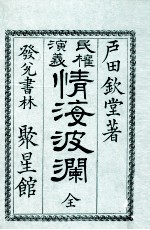 戸田欽堂著
民權
演義
情海波瀾
全
發兌書林
聚星館